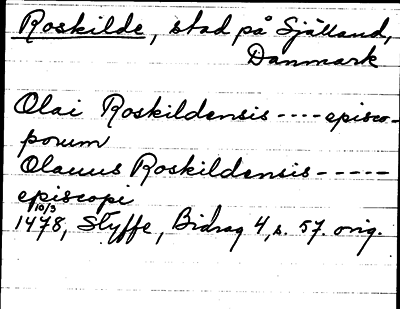 Roskilde, stad på Själland,
Danmark
Olai Roskildensis ---- episco-
porum
Olauus Roskildensis -----
episcopi
10/3
1478, Styffe, Bidrag 4, s. 57. orig.